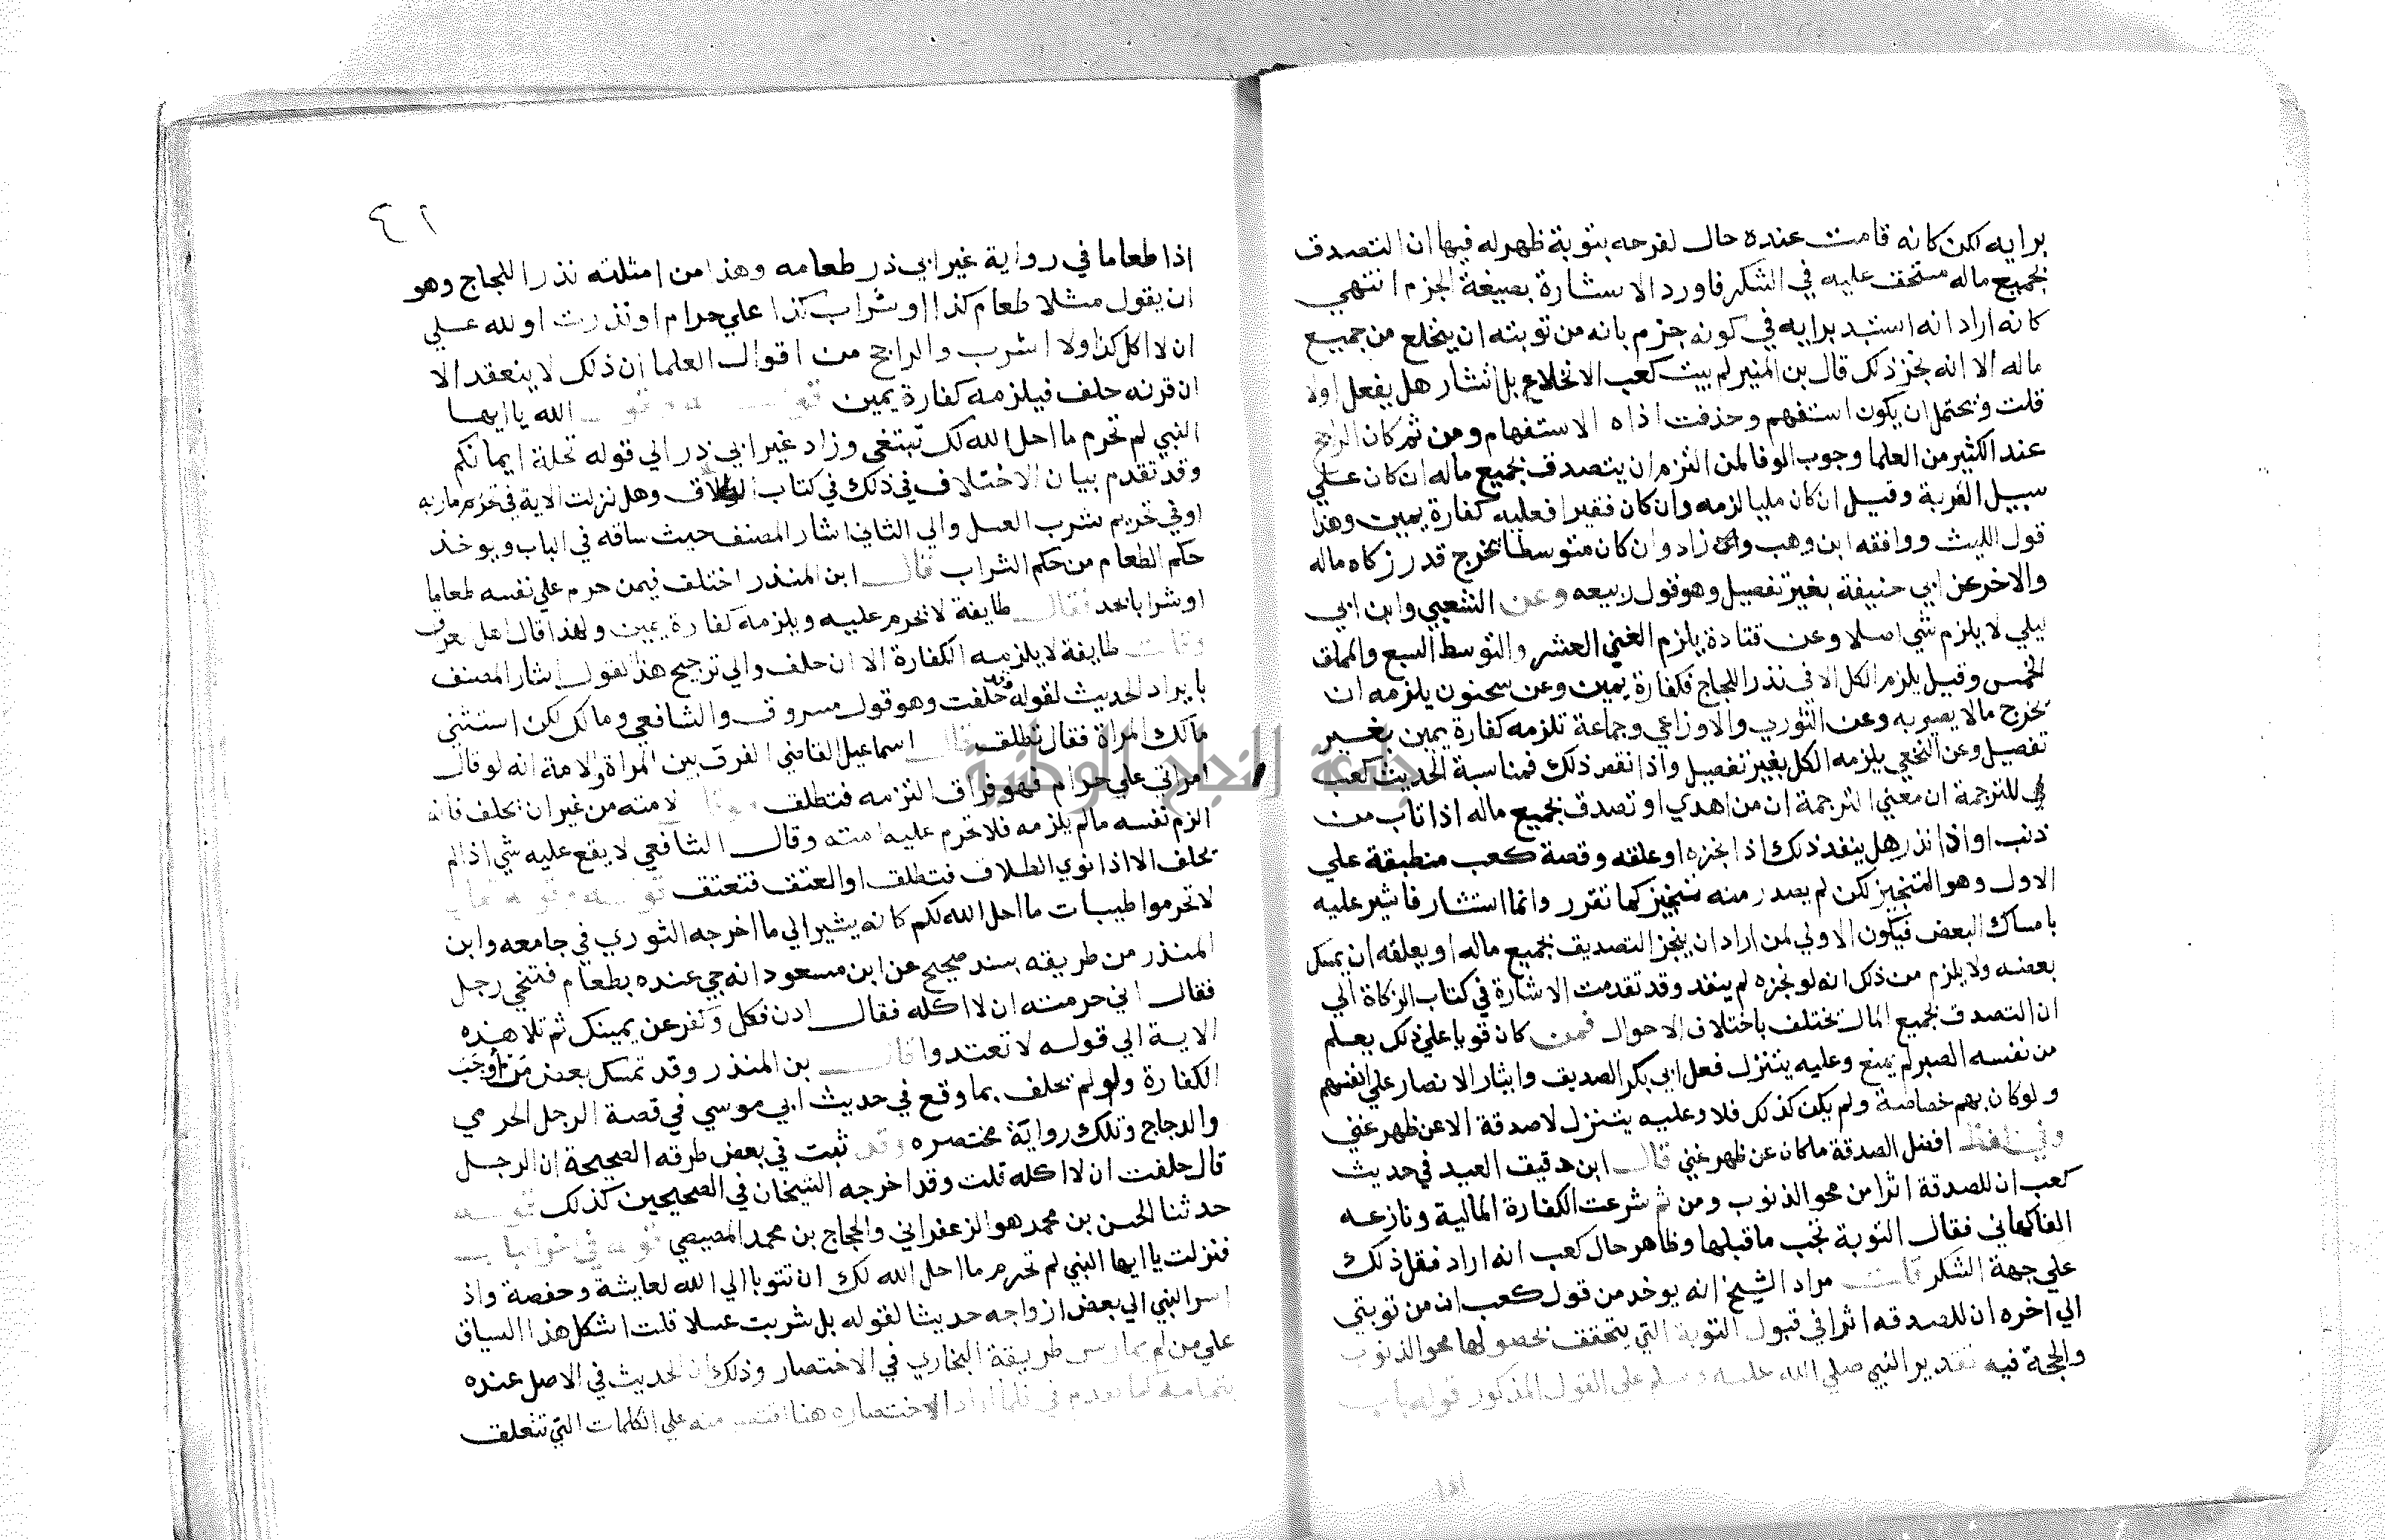 برايه لكن كانه قامت عنده حال لفرحه بتوبة ظهر له فيها ان التصدق
بجميع ماله مستحق عليه في الشكر فاورد الاستشارة بصيغة الجزم انتهي
كانه اراد انه استبد برايه في كونه جزم بانه من توبته ان ينخلع من جميع
ماله الا انه نجز ذلك قال بن المنير لم يبت كعب الانخلاع بل استشار هل يفعل اولا
قلت ويحتمل ان يكون استفهم وحذفت اداه الاستفهام ومن ثم كان الراجح
عند الكثير من العلما وجوب الوفا لمن التزم ان يتصدق بجميع ماله ان كان علي
سبيل القربة وقيل ان كان مليا لزمه وان كان فقيرا فعليه كفارة يمين وهذا
قول الليث ووافقه ابن وهب وزاد وان كان متوسطا يخرج قدر زكاه ماله
والاخر عن ابي حنيفة بغير تفصيل وهو قول ربيعه وعن الشعبي وابن ابي
ليلي لا يلزم شي اصلا وعن قتادة يلزم الغني العشر والتوسط السبع والمملق
الخمس وقيل يلزم الكل الا في نذر اللجاج فكفارة يمين وعن سحنون يلزمه ان
يخرج مالا يضر به وعن الثوري والاوزاعي وجماعة تلزمه كفارة يمين بغير
تفصيل وعن النخعي يلزمه الكل بغير تفصيل واذا تقرر ذلك فمناسبة الحديث كعب
في للترجمة ان معني الترجمة ان من اهدي او تصدق بجميع ماله اذا تاب من
ذنب او اذا نذر هل ينفذ ذلك اذا نجزه او علقه وقصة كعب منطبقة علي
الاول وهو التنجيز لكن لم يصدر منه تنجيز كما تقرر وانما استشار فاشير عليه
بامساك البعض فيكون الاولي لمن اراد ان ينجز التصديق بجميع ماله او يعلقه ان يمسك
بعضه ولا يلزم من ذلك انه لو نجزه لم ينفذ وقد تقدمت الاشارة في كتاب الزكاة الي
ان التصدق بجميع المال يختلف باختلاف الاحوال فمن كان قويا علي ذلك يعلم
من نفسه الصبر لم يمنع وعليه يتنزل فعل ابي بكر الصديق وايثار الانصار علي انفسهم
ولو كان بهم خصاصة ولم يكن كذلك فلا وعليه يتنزل لا صدقة الا عن ظهر غني
وفي لفظ افضل الصدقة ما كان عن ظهر غني قال ابن دقيق العيد في حديث
كعب ان للصدقة اثرا من محو الذنوب ومن ثم شرعت الكفارة المالية ونازعه
الفاكهاني فقال التوبة تجب ما قبلها وظاهر حال كعب انه اراد فعل ذلك
علي جهة الشكر قلت مراد الشيخ انه يوخذ من قول كعب ان من توبتي
الي اخره ان للصدقه اثرا في قبول التوبة التي يتحقق بحصولها محو الذنوب
والحجة فيه تقدير النبي صلي الله عليه وسلم علي القول المذكور قوله باب
اذا
٤١
اذا طعاما في رواية غير ابي ذر طعامه وهذا من امثلته نذر اللجاج وهو
ان يقول مثلا طعام كذا او شراب كذا علي حرام او نذرت او لله علي
ان لا اكل كذا ولا اشرب والراجح من اقوال العلما ان ذلك لا ينعقد الا
ان قرنه حلف فيلزمه كفارة يمين قوله وقول الله يا ايها
النبي لم تحرم ما احل الله لك تبتغي وزاد غير ابي ذر الي قوله تحلة ايمانكم
وقد تقدم بيان الاختلاف في ذلك في كتاب الطلاق وهل نزلت الاية في تحريم ماريه
او في تحريم شرب العسل والي الثاني اشار المصنف حيث ساقه في الباب ويوخذ
حكم الطعام من حكم الشراب قال ابن المنذر اختلف فيمن حرم علي نفسه طعاما
او شرابا يحد فقال طايفة لا تحرم عليه ويلزمه كفارة يمين ولهذا قال اهل العراق
وقالت طايفة لا يلزمه الكفارة الا ان حلف والي ترجيح هذا القول اشار المصنف
بايراد الحديث لقوله وقد حلفت وهو قول مسروق والشافعي ومالك لكن استثني
مالك المراة فقال تطلق قال اسماعيل القاضي الفرق بين المراة والامة انه لو قال
امراتي علي حرام فهو فراق التزمه فتطلق ولو قال لامته من غير ان يحلف فانه
الزم نفسه مالم يلزمه فلا تحرم عليه امته وقال الشافعي لا يقع عليه شي اذا لم
يحلف الا اذا نوي الطلاق فتطلق او العتق فتعتق قوله وقوله تعالي
لا تحرموا طيبات ما احل الله لكم كانه يشير الي ما اخرجه الثوري في جامعه وابن
المنذر من طريقه بسند صحيح عن ابن مسعود انه جي عنده بطعام فتنحي رجل
فقال اني حرمته ان لا اكله فقال ادن فكل وكفر عن يمينك ثم تلا هذه
الاية الي قوله لا تعتدوا قال بن المنذر وقد تمسك بعض من اوجب
الكفارة ولو لم يحلف بما وقع في حديث ابي موسي في قصة الرجل الحرمي
والدجاج وتلك رواية مختصره وقد ثبت في بعض طرقه الصحيحة ان الرجل
قال حلفت ان لا اكله قلت وقد اخرجه الشيخان في الصحيحين كذلك قوله
حدثنا الحسن بن محمد هو الزعفراني والحجاج بن محمد المصيصي قوله في
فنزلت يا ايها النبي لم تحرم ما احل الله لك ان تتوبا الي الله لعايشة وحفصة واذ
اسر النبي الي بعض ازواجه حديثا لقوله بل شربت عسلا قلت اشكل هذا السياق
علي من لم يمارس طريقة البخاري في الاختصار وذلك ان الحديث في الاصل عنده
بتمامه كما تقدم في فلما اراد الاختصاره هنا اقتصر منه علي الكلمات التي تتعلق
جامعة النجاح الوطنية